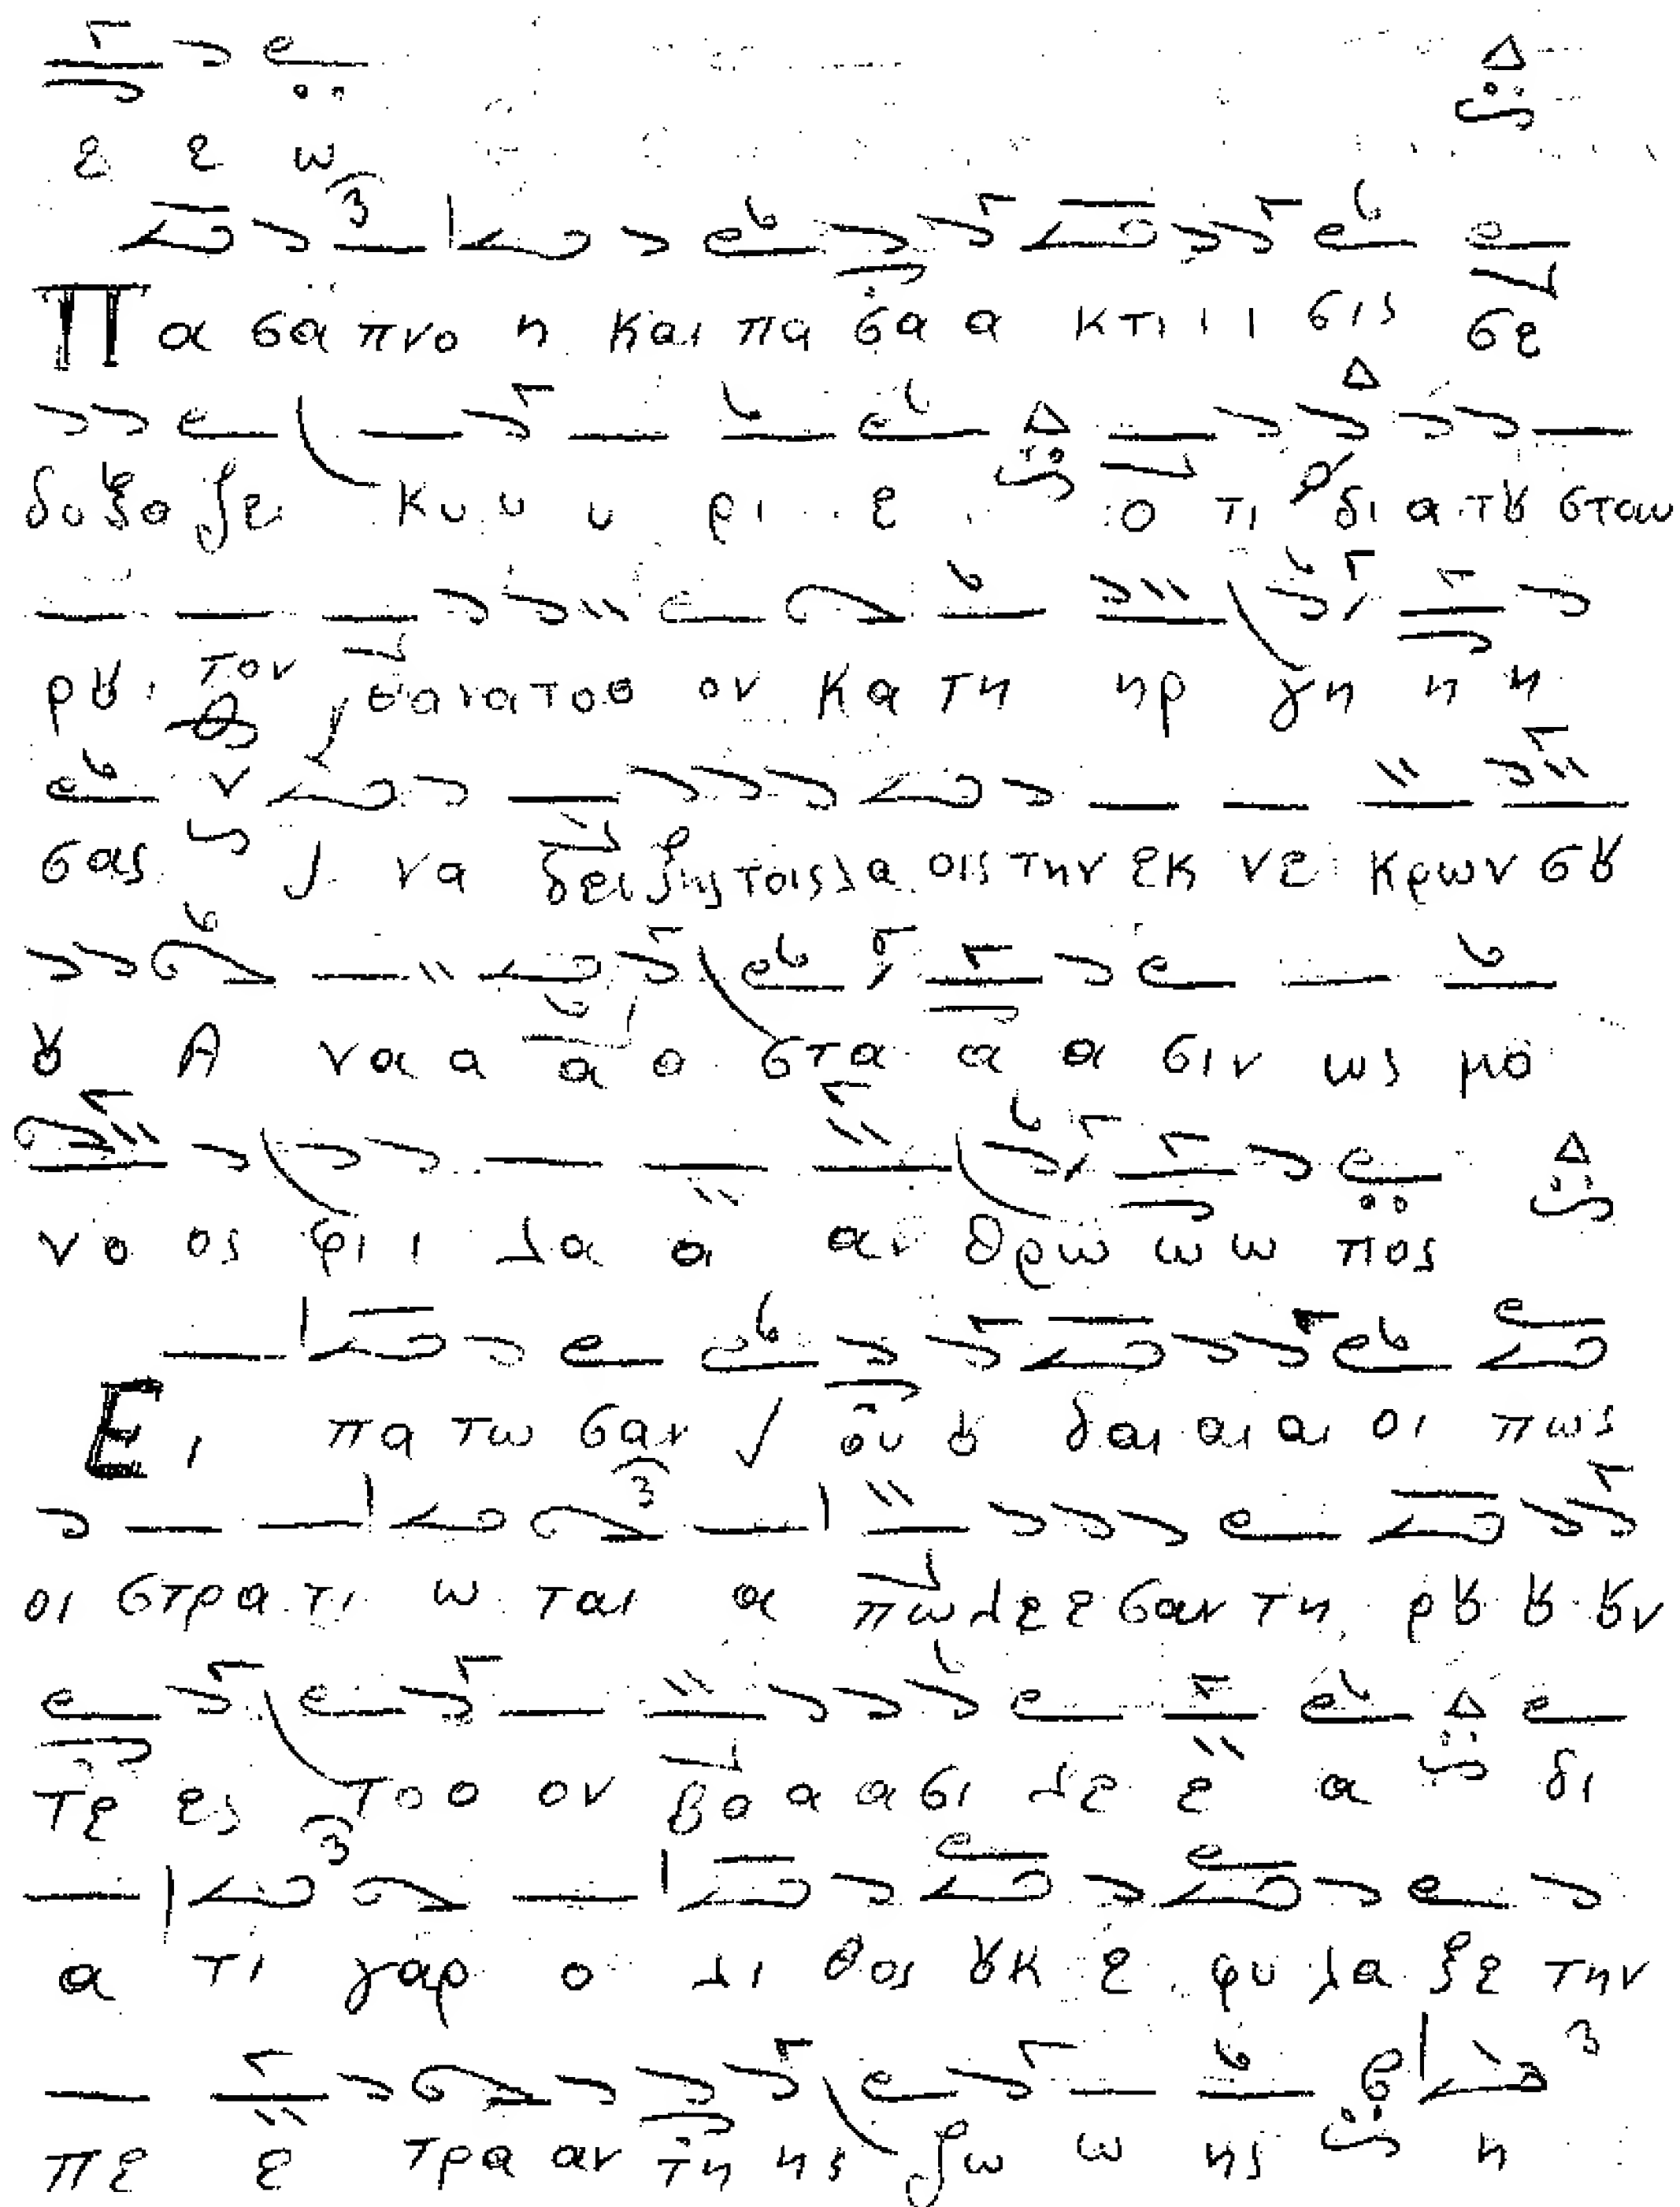 ε ε ω
Πα σα πνο η και πα σα α κτι ι ι σις σε
δο ξα ζει Κυ υ υ ρι ε ο τι δι α τȣ σταυ
ρȣ τον θα να το ο ον κα τη ηρ γη η η
σας ι να δει ξης τοις λα οις την εκ νε κρων σȣ
ȣ Α να α α α στα α α σιν ως μο
νο ος φι ι λα α αν θρω ω ω πος
Ει πα τω σαν Ιου ȣ δαι αι αι οι πως
οι στρα τι ω ται α πω λε ε σαν τη ρȣ ȣ ȣν
τε ες το ο ον βα α α σι λε ε α δι
α τι γαρ ο λι θος ȣκ ε φυ λα ξε την
πε ε τρα αν τη ης ζω ω ης η